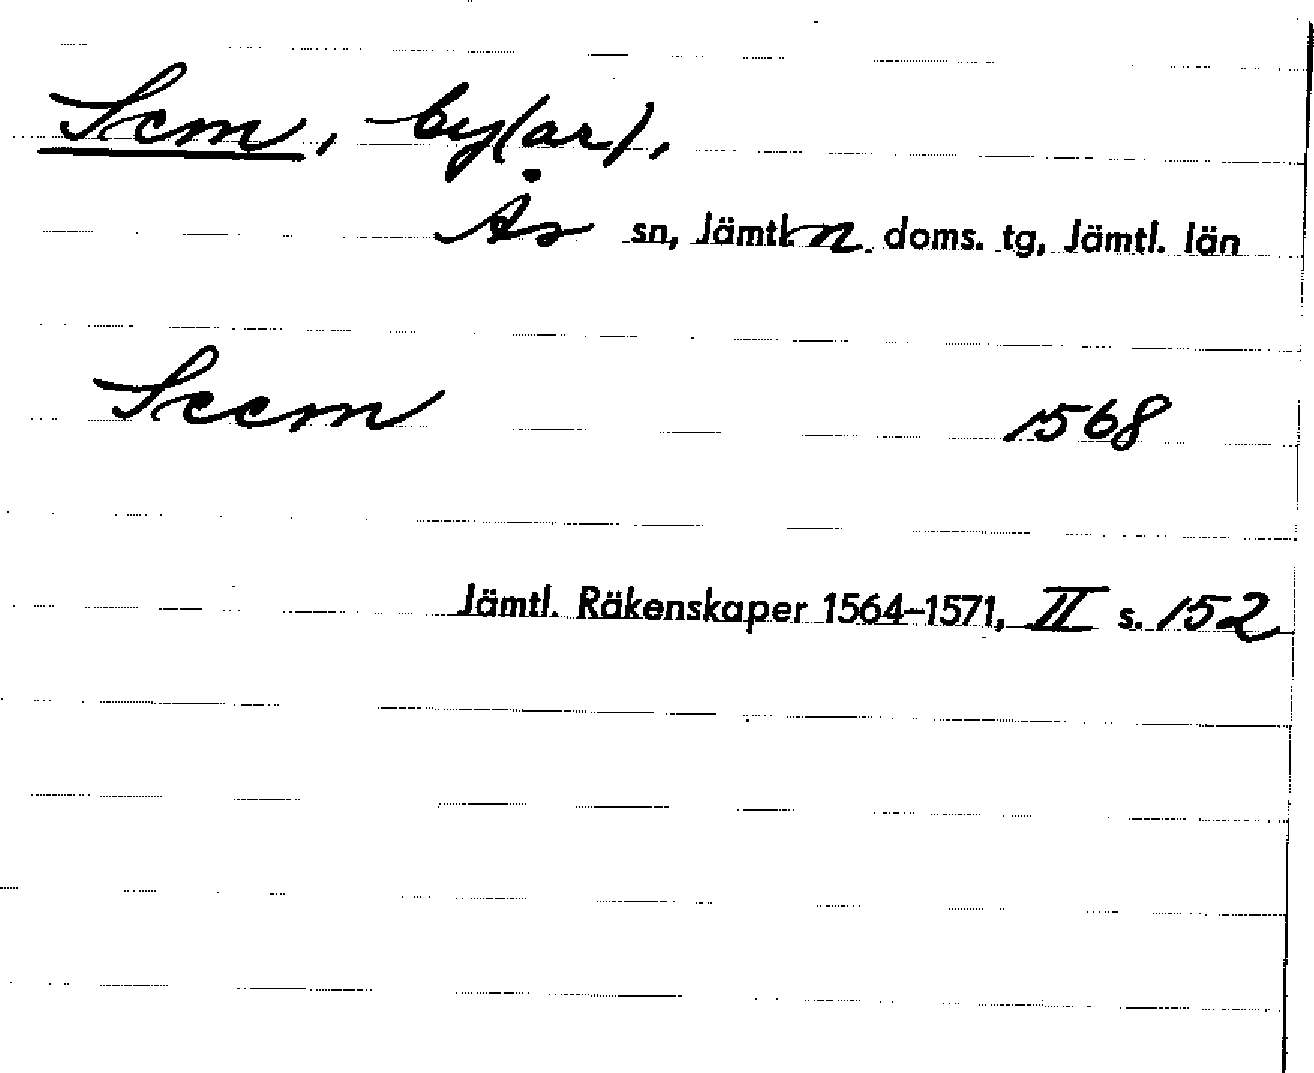 Sem, by(ar),
Ås sn, Jämtl. n. doms. tg, Jämtl. län
Seem 1568
Jämtl. Räkenskaper 1564–1571, II s. 152